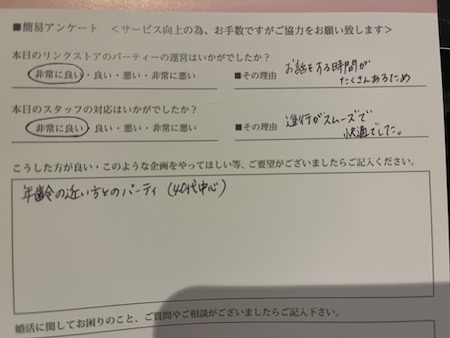 ■簡易アンケート <サービス向上の為、お手数ですがご協力をお願い致します>
本日のリンクストアのパーティーの運営はいかがでしたか?
非常に良い・良い・悪い・非常に悪い ■その理由 お話をする時間が
たくさんあるため
本日のスタッフの対応はいかがでしたか?
非常に良い・良い・悪い・非常に悪い ■その理由 進行がスムーズで
快適でした。
こうした方が良い・このような企画をやってほしい等、ご要望がございましたらご記入ください。
年齢の近い方とのパーティ (40代中心)
婚活に関してお困りのこと、ご質問やご相談がございましたらご記入下さい。